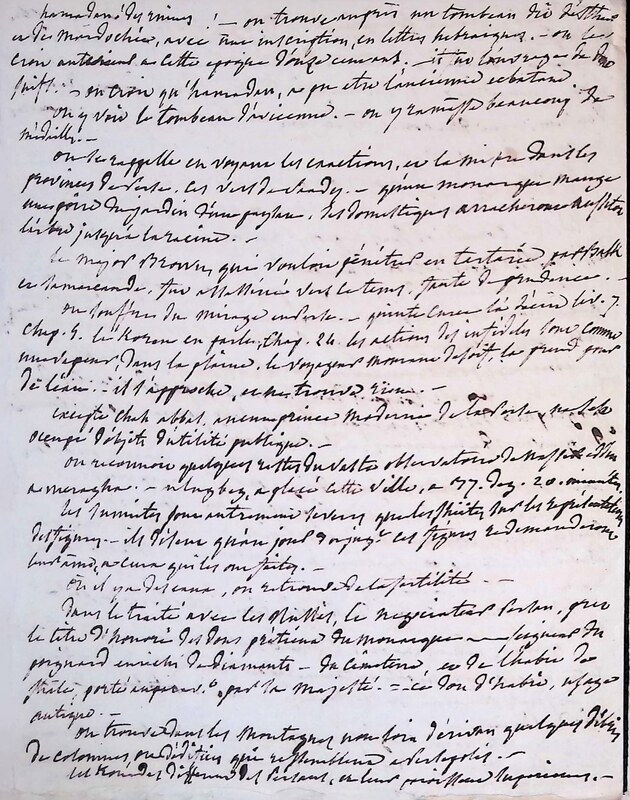 hamadan des ruines ! — on trouve auprès un tombeau dit d'Esther
et de Mardochée, avec une inscription, en lettres hébraiques. — on les
croit à cette époque
juifs. — on croit qu'hamadan, a pu etre l'ancienne ecbatane
on y voit le tombeau d'avicenne. — on y ramasse beaucoup de
médailles. —
on se rappelle en voyant les exactions, et la misère dans les
provinces de Perse, ces vers de Saadi. — qu'un monarque mange
une poire du jardin d'un paysan, ses domestiques arracheront
l'arbre jusqu'à la racine. —
le major Brown, qui vouloit pénétrer en tartarie, par
et samarcande, fut assassiné vers ce tems, faute de prudence. —
on souffre du mirage en Perse. — quinte curce la décrit liv. 7.
chap. 5. le Koran en parle, chap. 24. les actions des infideles sont comme
une vapeur, dans la plaine, le voyageur mourant de soif, la prend pour
de l'eau. — il s'approche, et ne trouve rien. —
excepté Chah abbas, aucun prince moderne de la Perse, ne s'est
occupé d'objets d'utilité publique. —
on reconnoit quelques restes du vaste observatoire de
a meragha. — ulugbeg, a placé cette ville, a 37. deg. 20. minutes
les sunnites sont autrement severes que les shiites sur les représentations
de figures. — ils disent qu'un jour ces figures redemanderont
leur ame, a ceux qui les ont faites. —
où il y a des eaux, on retrouve de la fertilité. —
dans le traité avec les Russes, le négociateur Persan, prit
le titre d'honoré des dons prétieux du monarque — seigneur du
poignard enrichi de diamants — du cimeterre, et de l'habit de
perles, porté auparavt. par sa majesté. = ce don d'habit, usage
antique. —
on trouve dans les montagnes non loin d'érivan quelques débris
de colonnes, ou d'édifices qui ressemblent a Persepolis. —
les Kurdes different des Persans, et leur sont